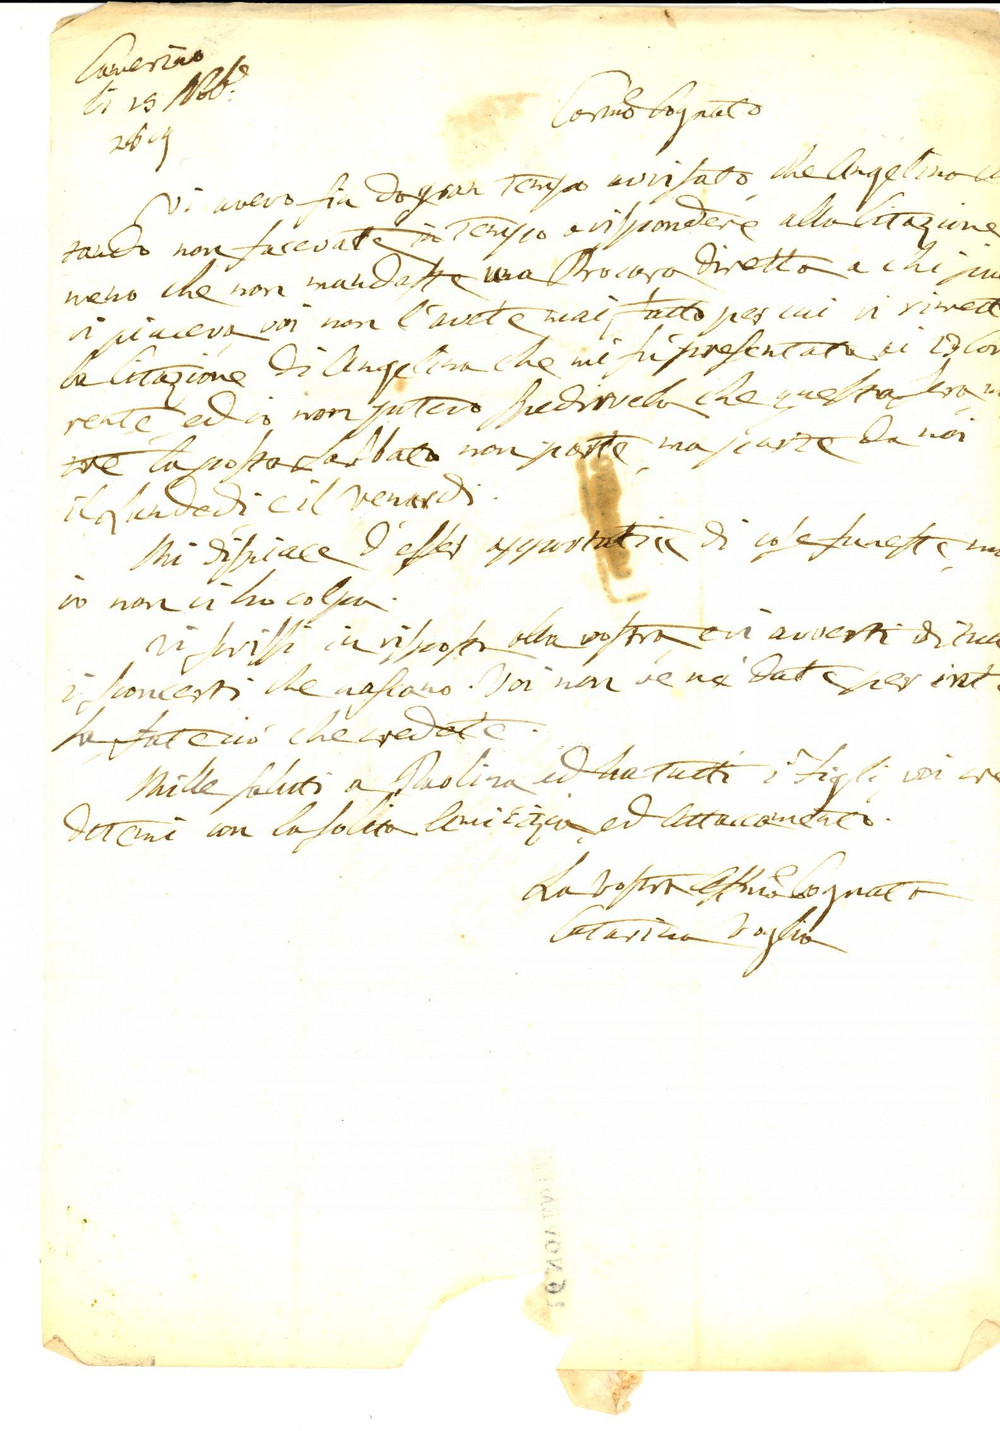 Camerino
li 15 Nbb.e
Carmo Cognato
Vi avevo fin dogran tempo avvisato, che Angelino
non facevate in tempo a rispondere alla Citazione
meno che non mandaste una Procura diretta a chi
vi piaceva, voi non l'avete mai fatto per cui vi
la Citazione di Angelina che mi fu presentata
rente, ed io non potevo spedirvela che questa sera
tre la posta Sabbato non parte, ma parte da noi
il Lundedi e il Venerdi.
Mi dispiace d'esser apportatrice di cose funeste, ma
io non ci ho colpa.
Vi scrissi in risposta alla vostra, e vi avverti di
i sconcerti che nascano. Voi non ve ne date per
sa, fate ciò che credete.
Mille saluti a Paolina ed ha tutti i Figli, voi cre
detemi con la solita Amicizia, ed Attaccamento.
La Vostra Affma Cognata
Catarina Voglia